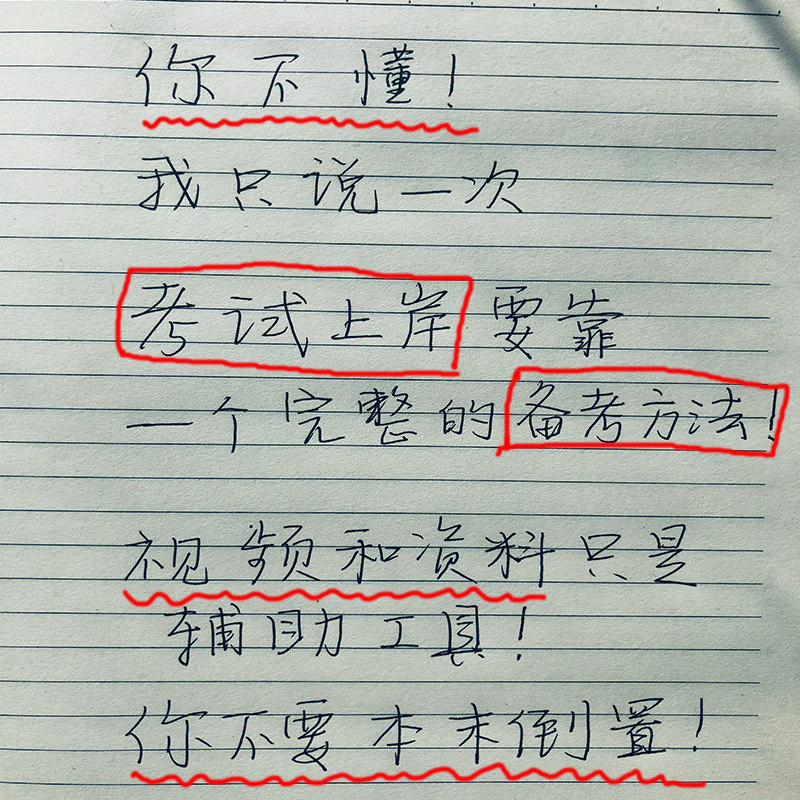 你不懂！
我只说一次
考试上岸要靠
一个完整的备考方法！
视频和资料只是
辅助工具！
你不要本末倒置！